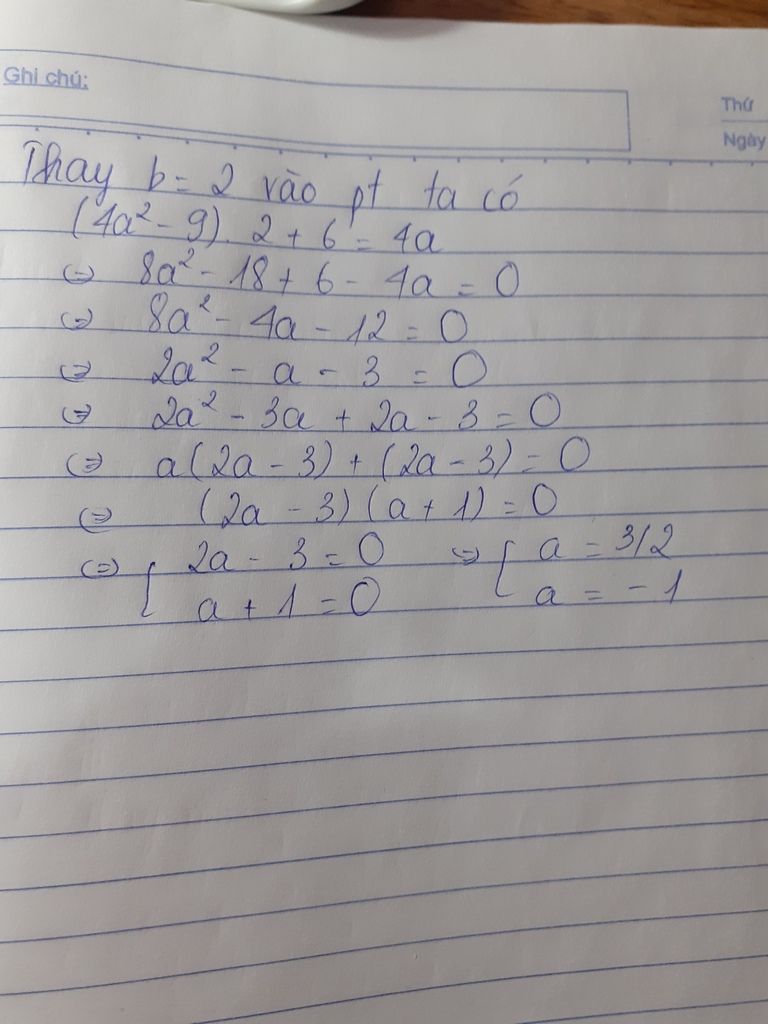 Ghi chú:
Thứ
Ngày
Thay b = 2 vào pt ta có
(4a² - 9). 2 + 6 = 4a
⇔ 8a² - 18 + 6 - 4a = 0
⇔ 8a² - 4a - 12 = 0
⇔ 2a² - a - 3 = 0
⇔ 2a² - 3a + 2a - 3 = 0
⇔ a(2a - 3) + (2a - 3) = 0
⇔ (2a - 3)(a + 1) = 0
⇔ [ 2a - 3 = 0 ⇔ [ a = 3/2
a + 1 = 0 a = -1